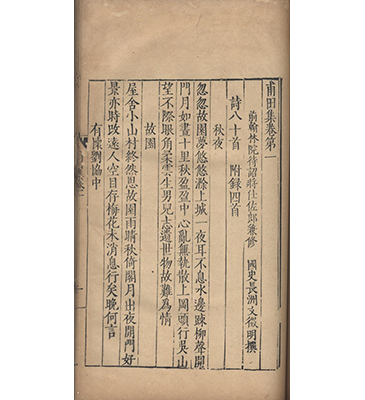 甫田集卷第一
前翰林院待詔將仕佐郎兼修 國史長洲文徵明撰
詩八十首 附録四首
秋夜
忽忽故園夢悠悠滁上城一夜耳不息水邊踈柳聲開
門月如晝十里秋盈盈中心亂無執散上岡頭行吳山
望不際眼角柔雲生男兒志遺世物故難為情
故園
屋舍小山村終然思故園雨晴秋倚閣月出夜開門好
景亦時改遠人空目存梅花木消息行矣晚何言
有懷劉協中